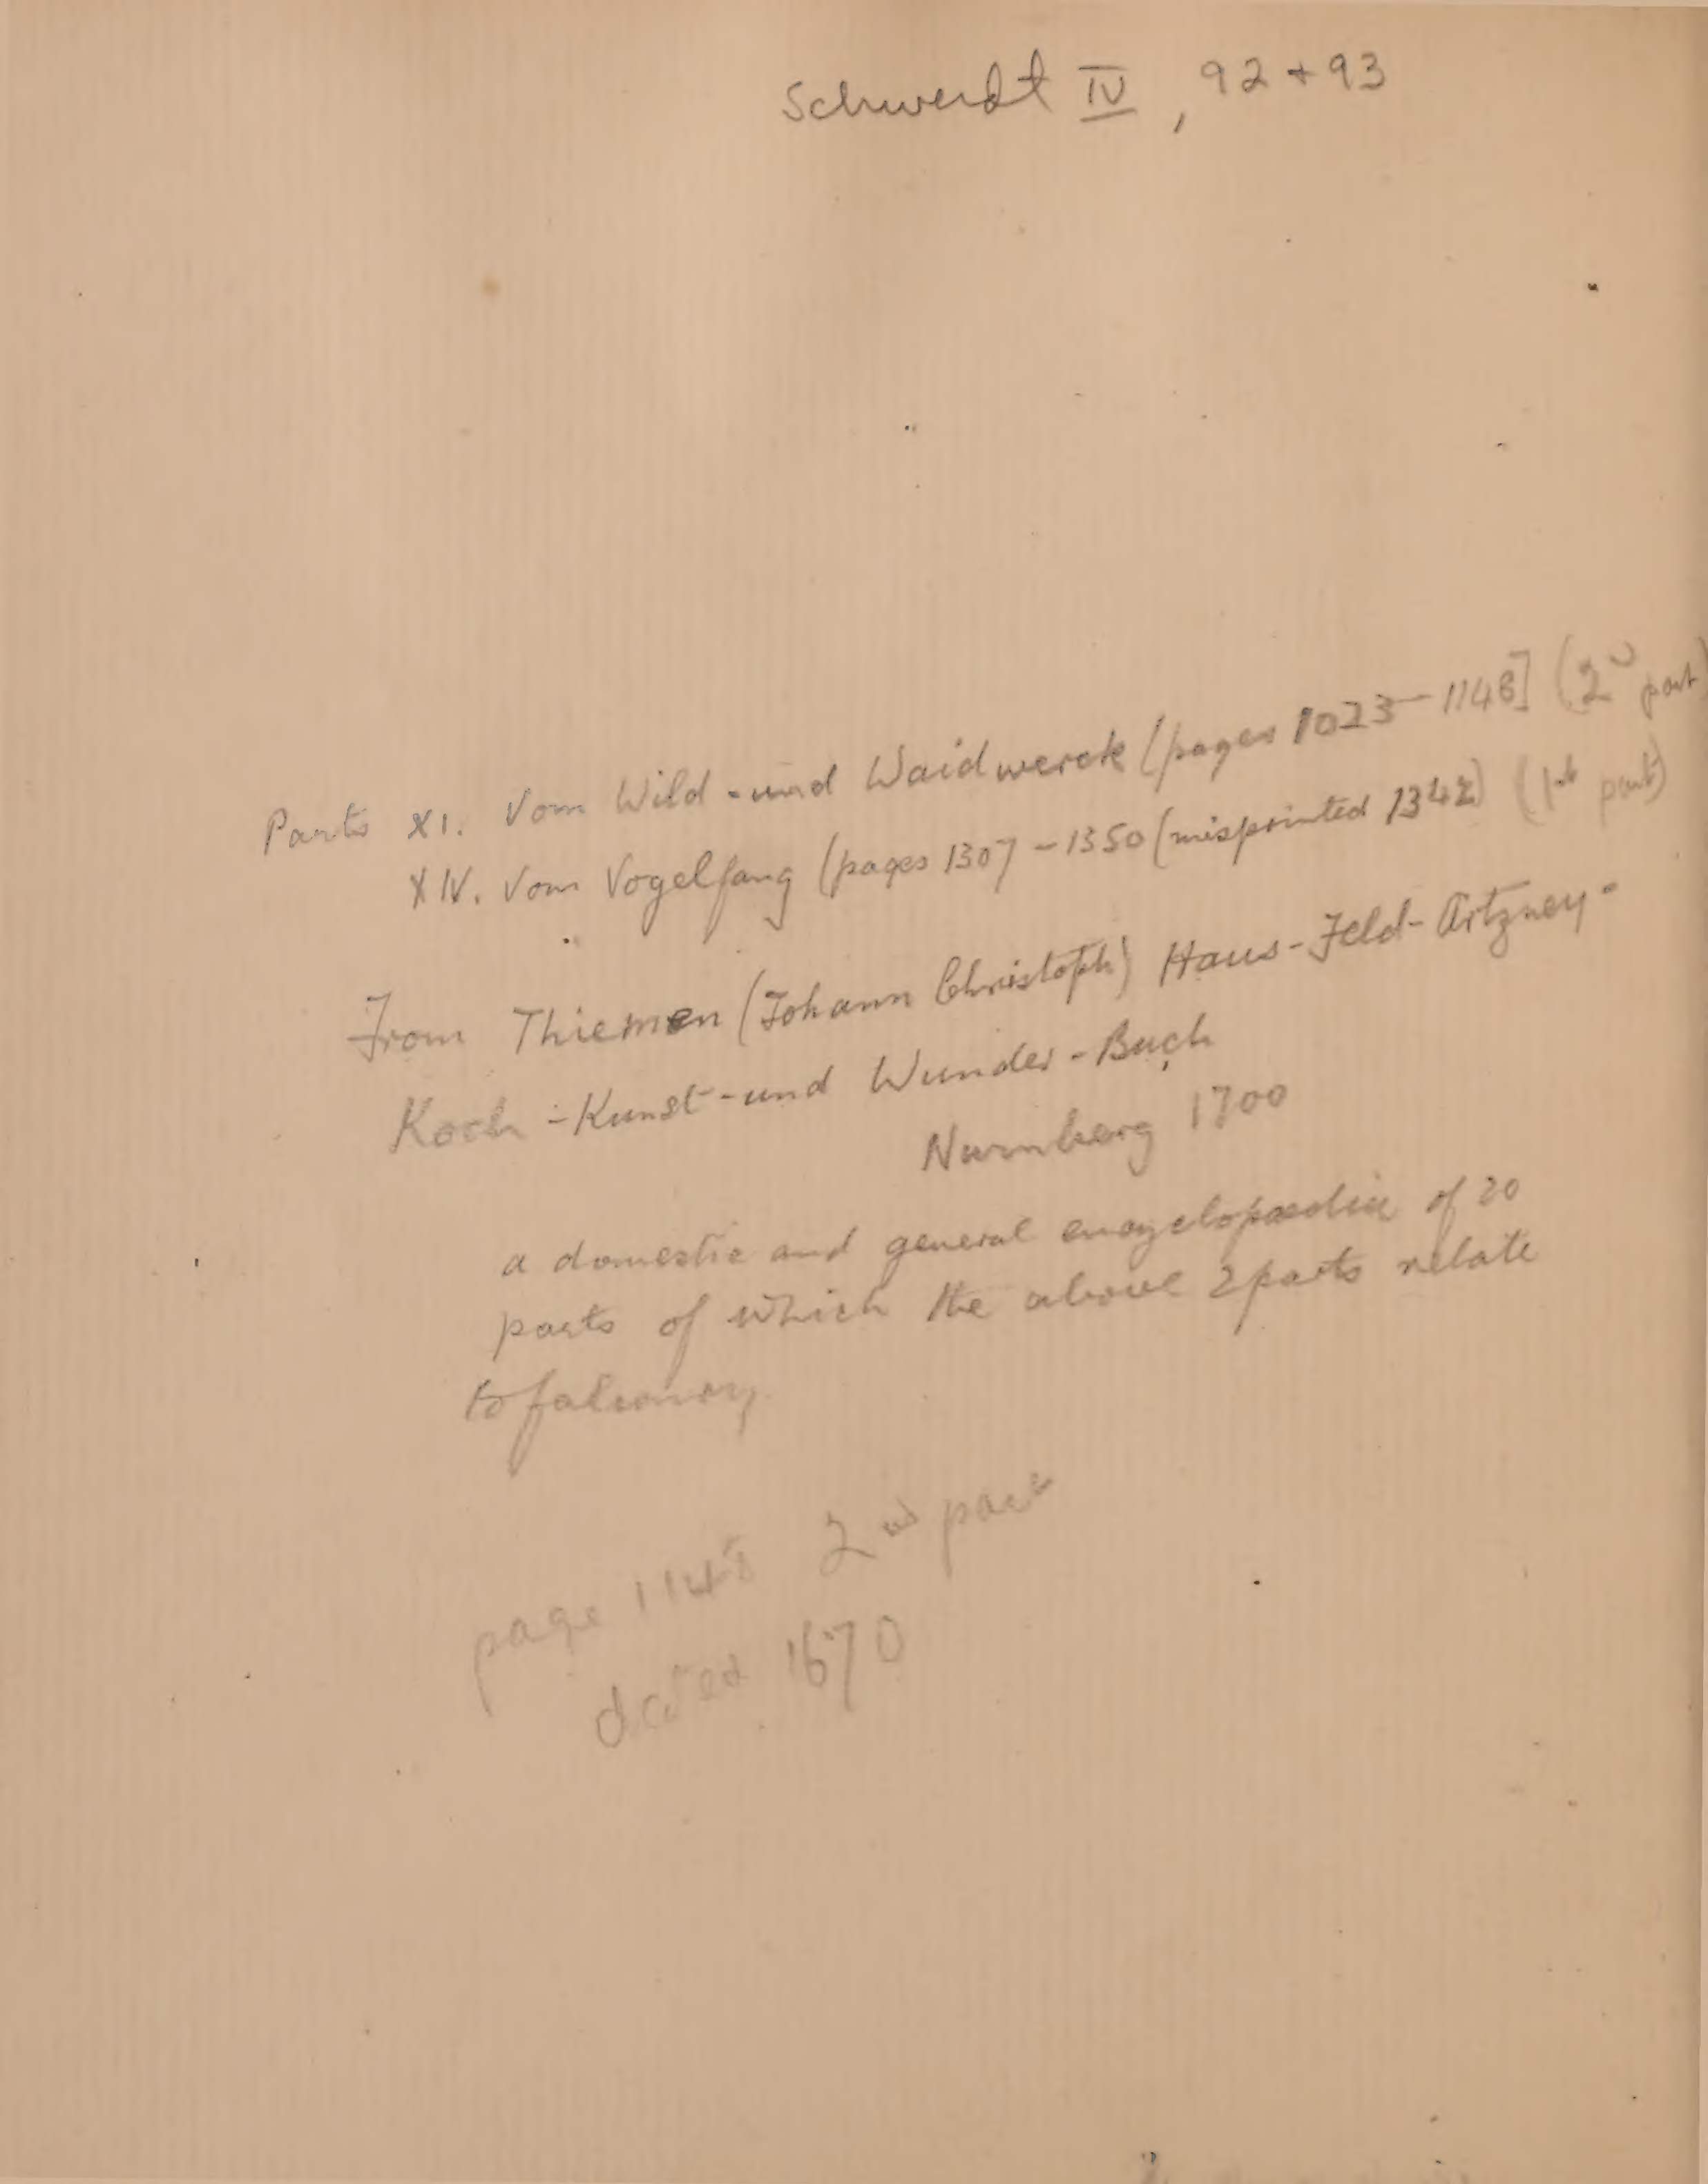 Schwerdt IV, 92 + 93
Parts XI. Vom Wild-und Waidwerck (pages 1023-1148] (2d part)
XIV. Vom Vogelfang (pages 1307-1350 (misprinted 1342) (1st part)
From Thiemen (Johann Christoph) Haus-Feld-Artzney-
Koch-Kunst-und Wunder-Buch
Nurnberg 1700
a domestic and general encyclopaedia of 20
parts of which the above 2 parts relate
to falconry.
page 1148 2nd part
dated 1670